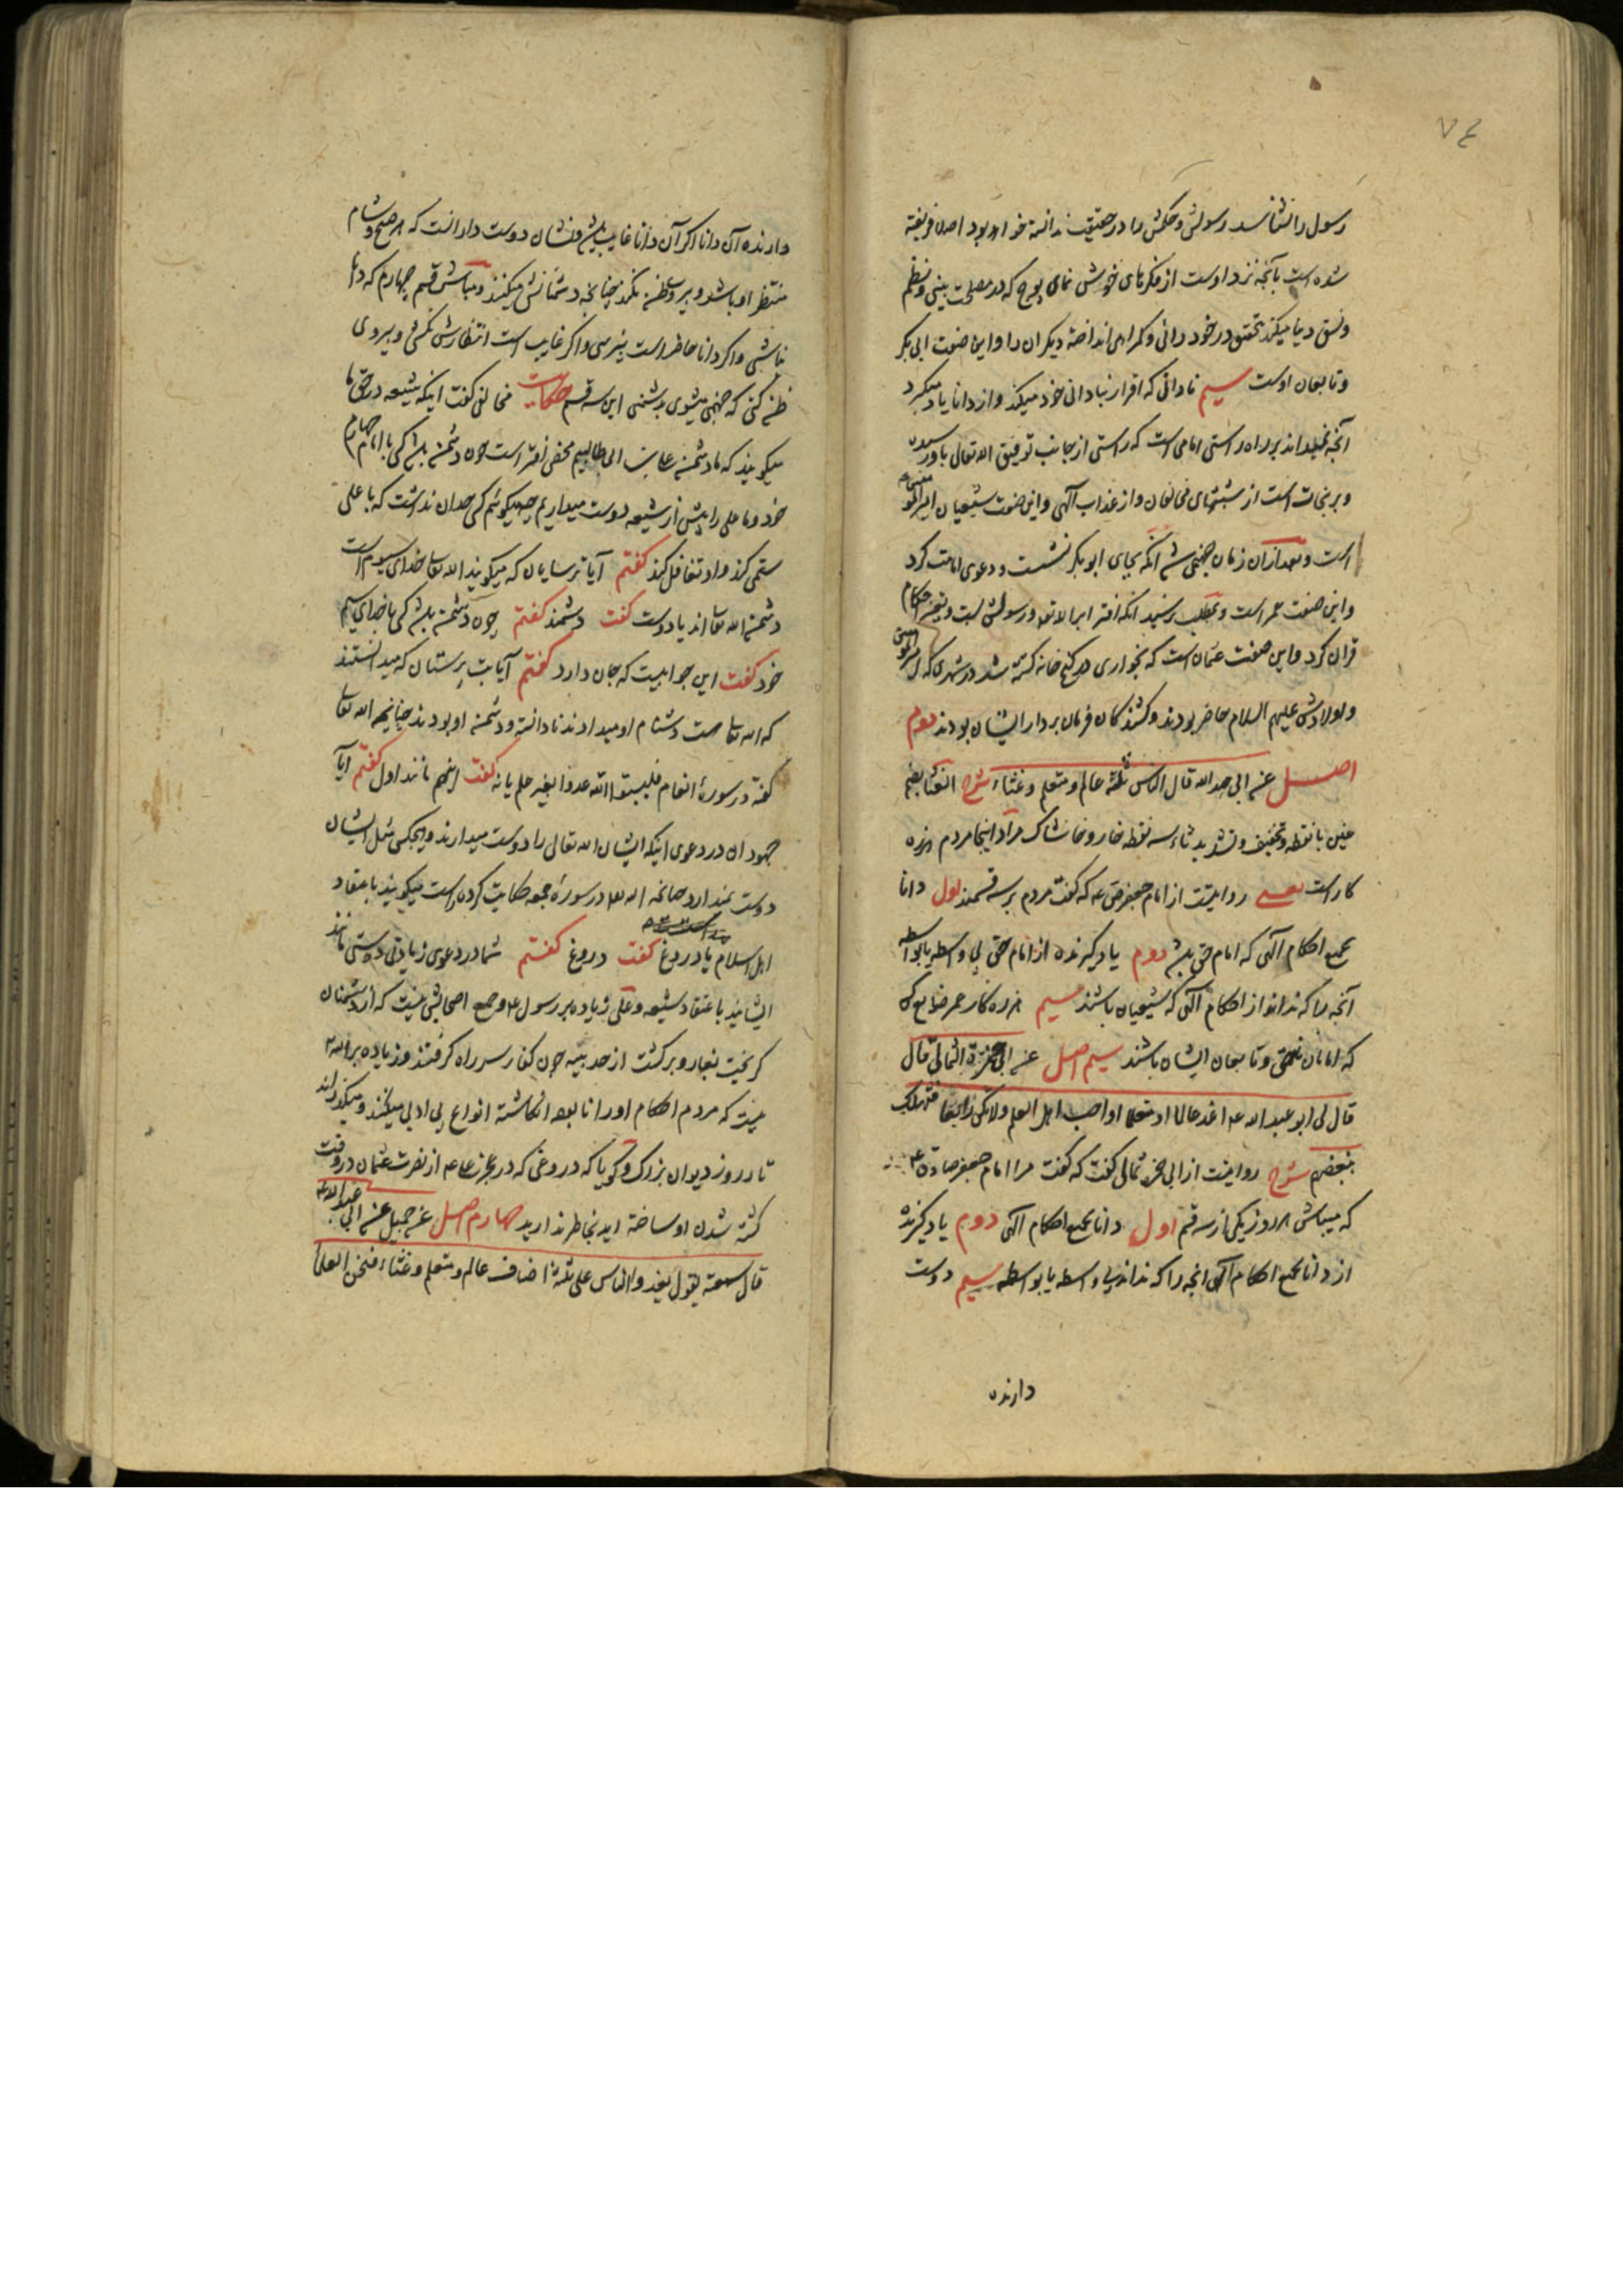 ٧٤
رسول را نشناسد رسولش و حکمش را در حقیقت ندانسته خواهد بود اصلا فریفته
شده است بآنچه نزد اوست از فکرهای خوش نمای پوچ که در مصلحت بینی و نظم
و نسق دنیا میکند بتحقیق در خود رائی و گمراهی انداخته دیگران را و این صفت ابی بکر
و تابعان اوست سیم نادانی که اقرار بنادانی خود میکند و از دانا یاد میگیرد
آنچه نمیداند بر راه راستی امامی است که راستی از جانب توفیق الله تعالی باو رسیده
و بر نجات است از شبهتهای مخالفان و از عذاب آلهی و این صفت شیعیان امیر المؤمنین
است و بعد از آن زمان جهنمی شد آنکه بجای ابو بکر نشست و دعوی امامت کرد
و این صفت عمر است و بمطلب نرسید آنکه افترا بر الله تعالی و رسولش بست و تغییر احکام
قرآن کرد و این صفت عثمان است که بخواری در کنج خانه کشته شد در شهری که امیر المؤمنین
و اولادش علیهم السلام حاضر بودند و کشندگان فرمان بردار ایشان بودند دوم
اصل عن ابی عبد الله قال الناس ثلثة عالم و متعلم و غثاء شرح الغثا بضم
غین با نقطه و تخفیف و تشدید ثاء سه نقطه خار و خاشاک مراد اینجا مردم هرزه
کار است یعنی روایتست از امام جعفر ص ع که گفت مردم بر سه قسمند اول دانا
بجمیع احکام آلهی که امام حق باشد دوم یاد گیرنده از امام حق بی واسطه یا بواسطه
آنچه را که نداند از احکام آلهی که شیعیان باشند سیم هرزه کار عمر ضایع کن
که امامان ناحق و تابعان ایشان باشند سیم اصل عن ابی حمزة الثمالی قال
قال لی ابو عبد الله ع اغد عالما او متعلما او احب اهل العلم و لا تکن رابعا فتهلک
ببغضهم شرح روایتست از ابی حمزه ثمالی گفت که گفت مرا امام جعفر صادق ع
که میباش هر روز یکی از سه قسم اول دانا بجمیع احکام آلهی دوم یاد گیرنده
از دانا بجمیع احکام آلهی آنچه را که نداند بی واسطه یا بواسطه سیم دوست
دارنده
دارنده آن دانا اگر آن دانا غایب باشد نشان دوست دار آنست که هر صبح و شام
منتظر او باشد و پیروی ظن نکند چنانچه دشمنانش میکنند و مباش قسم چهارم که دانا
نباشی و اگر دانا حاضر است نپرسی و اگر غایب است انتظارش نکشی و پیروی
ظن کنی که جهنمی میشوی بدشمنی این سه قسم حکایت مخالفی گفت اینکه شیعه در حق ما
میگویند که ما دشمن علی بن ابی طالبیم محض افتر است چون دشمن باشد کسی با امام چهارم
خود و ما علی را بیش از شیعه دوست میداریم چه میگوئیم کسی حد آن نداشت که با علی
ستمی کند و او تغافل کند گفتم آیا ترسایان که میگویند الله تعالی خدای سیوم است
دشمن الله تعالی اند یا دوست گفت دشمند گفتم چون دشمن باشد کسی با خدای سیم
خود گفت این جوابیست که جان دارد گفتم آیا بت پرستان که میدانستند
که الله تعالی هست دشنام او میدادند نادانسته و دشمن او بودند چنانچه الله تعالی
گفته در سورهٔ انعام فیسبوا الله عدوا بغیر علم یا نه گفت اینهم مانند اول گفتم آیا
جهودان در دعوی اینکه ایشان الله تعالی را دوست میدارند و هیچکس مثل ایشان
دوست نمیدارد چنانچه الله تعالی در سورهٔ جمعه حکایت کرده راست میگویند باعتقاد
اهل اسلام یا دروغ گفت دروغ گفتم شما در دعوی زیادتی دوستی مانند
ایشانید باعتقاد شیعه و علی زیاده بر رسول ع و جمیع اصحابش نیست که از دشمنان
گریخت بغار و برگشت از حدیبیه چون کفار سر راه گرفتند و زیاده بر الله
نیست که مردم احکام او را نابوده انگاشته انواع بی ادبی میکنند و میگذراند
تا در روز دیوان بزرگ و گویا که دروغی که در عجز علی ع از نصرت عثمان در وقت
کشته شدن او ساخته اید بخاطر ندارید چهارم اصل عن جمیل عن ابی عبد الله
قال سمعته یقول یغدوا الناس علی ثلثة اصناف عالم و متعلم و غثاء فنحن العلماء